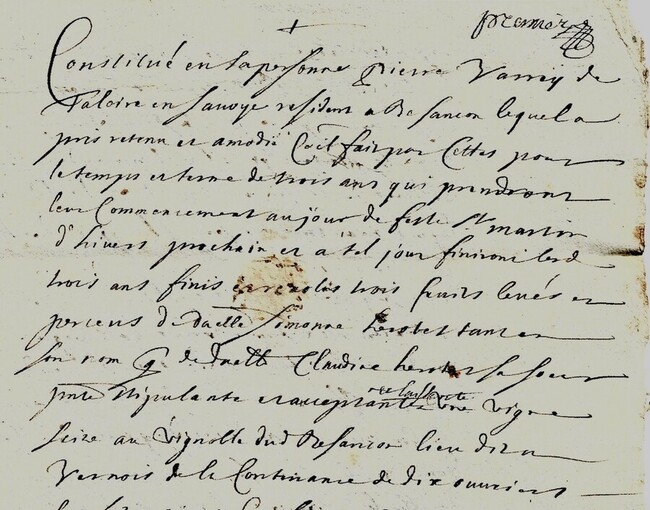 premier
Constitué en sa personne Pierre Varrey de
Taloire en Sauoye resident a Besancon lequel a
pris retenu et amodié Co͞e il fait par Cettes pour
le temps et terme de trois ans qui prendront
leur Commencement au jour de feste St martin
d'hivers prochain et a tel jour finiront lesd
trois ans finis et reuolus trois fruits leués et
perceus de dalle Simonne herbet tant en
son nom q de dlle Claudine herbet sa soeur
pnte stipulante et acceptante une vigne
scize au vignoble dud Besancon lieu dit en
Vernois de la Continance de dix ouuriers